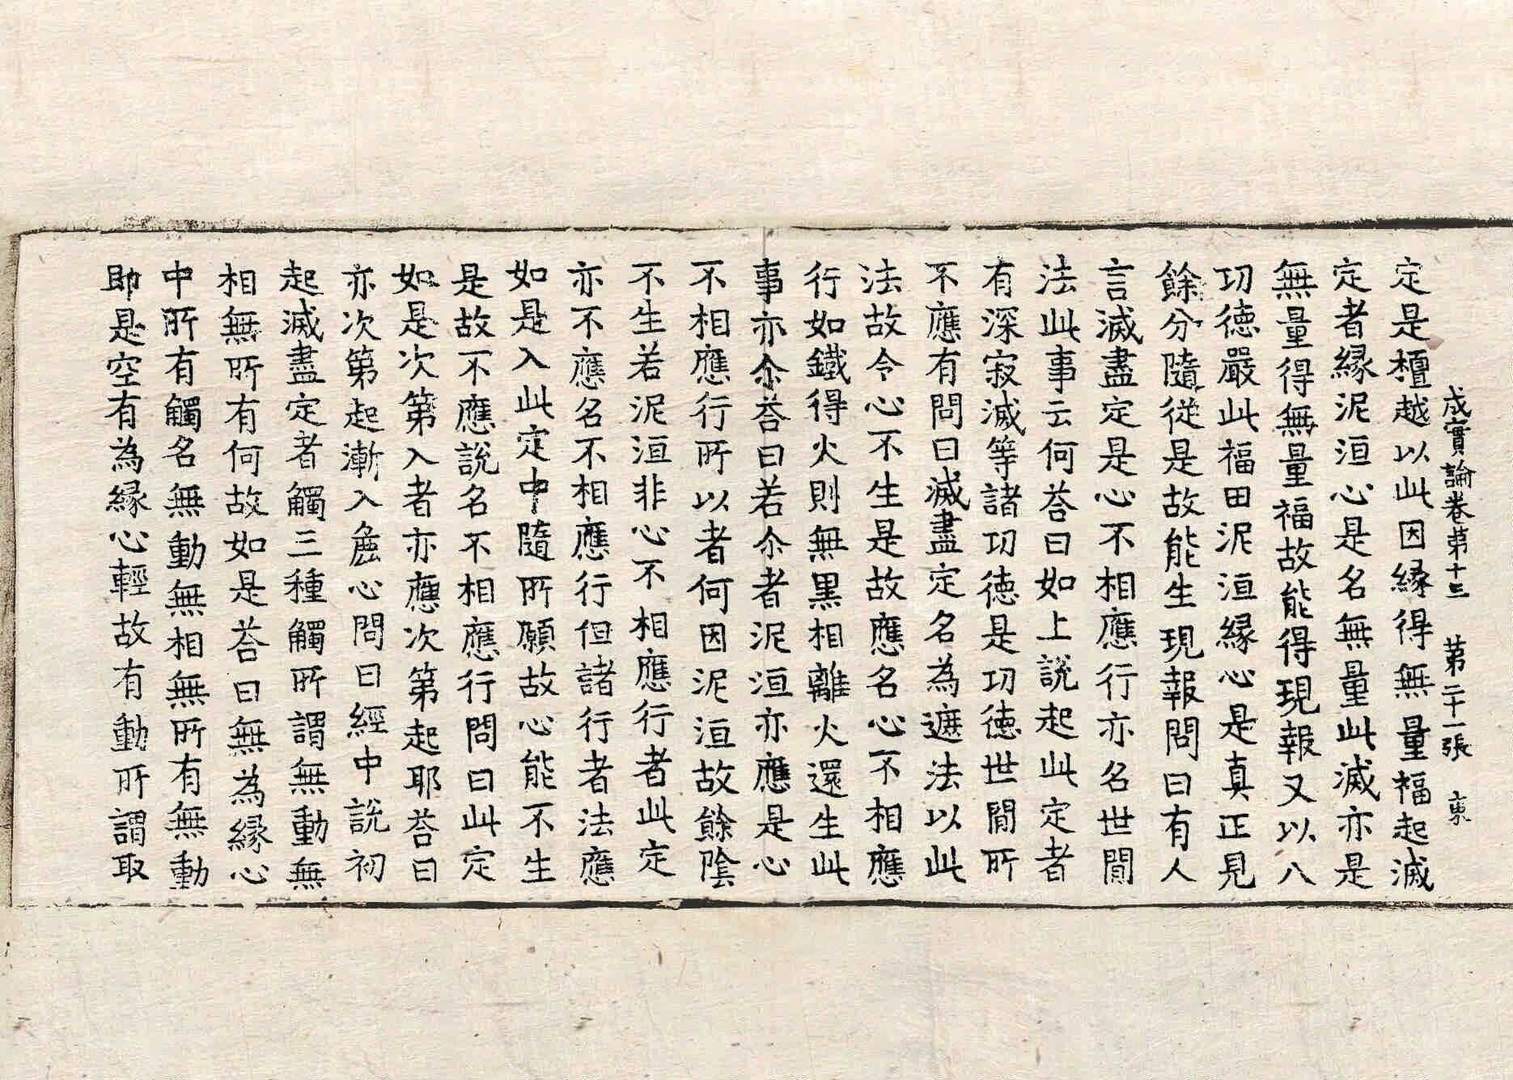 成實論卷苐十三 苐二十一張 東
定是檀越以此因緣得無量福起滅
定者緣泥洹心是名無量此滅亦是
無量得無量福故能得現報又以八
功德嚴此福田泥洹緣心是真正見
餘分隨從是故能生現報問曰有人
言滅盡定是心不相應行亦名世間
法此事云何荅曰如上說起此定者
有深寂滅等諸功德是功德世間所
不應有問曰滅盡定名為遮法以此
法故令心不生是故應名心不相應
行如鐵得火則無黑相離火還生此
事亦尒荅曰若尒者泥洹亦應是心
不相應行所以者何因泥洹故餘陰
不生若泥洹非心不相應行者此定
亦不應名不相應行但諸行者法應
如是入此定中隨所願故心能不生
是故不應說名不相應行問曰此定
如是次第入者亦應次第起耶荅曰
亦次第起漸入麁心問曰經中說初
起滅盡定者觸三種觸所謂無動無
相無所有何故如是荅曰無為緣心
中所有觸名無動無相無所有無動
即是空有為緣心輕故有動所謂取